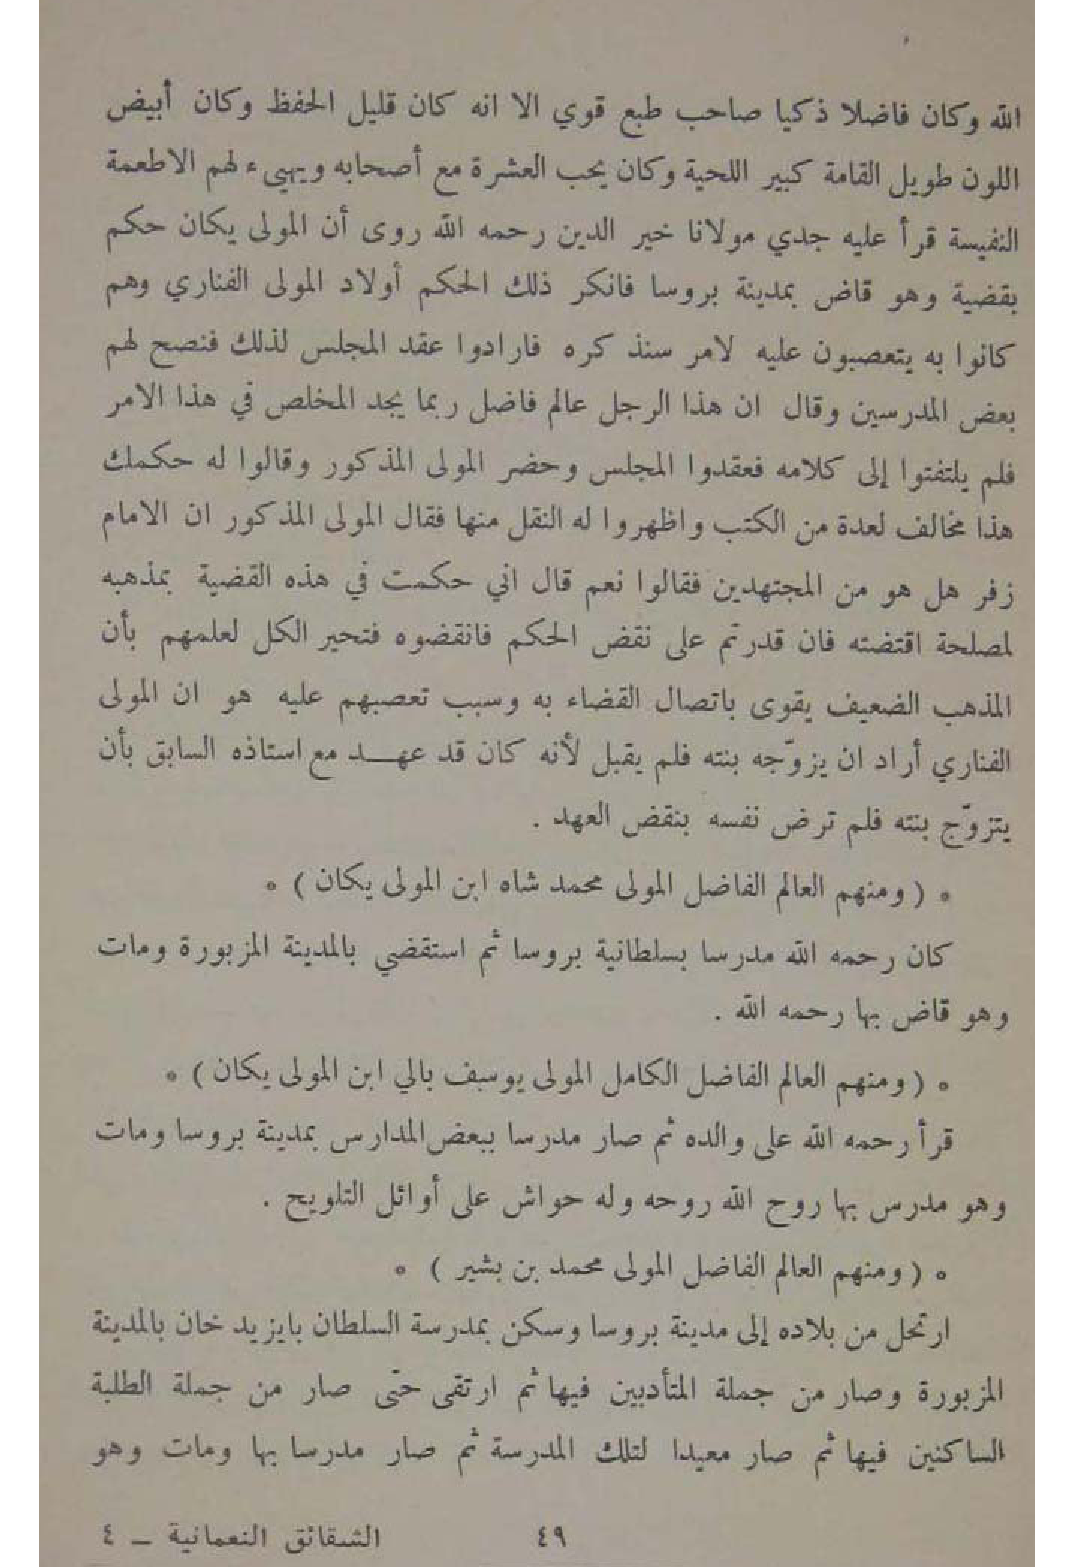 الله وكان فاضلا ذكيا صاحب طبع قوي الا انه كان قليل الحفظ وكان أبيض
اللون طويل القامة كبير اللحية وكان يحب العشرة مع أصحابه ويهيىء لهم الاطعمة
النفيسة قرأ عليه جدي مولانا خير الدين رحمه الله روى أن المولى يكان حكم
بقضية وهو قاض بمدينة بروسا فانكر ذلك الحكم أولاد المولى الفناري وهم
كانوا به يتعصبون عليه لامر سنذكره فارادوا عقد المجلس لذلك فنصح لهم
بعض المدرسين وقال ان هذا الرجل عالم فاضل ربما يجد المخلص في هذا الامر
فلم يلتفتوا إلى كلامه فعقدوا المجلس وحضر المولى المذكور وقالوا له حكمك
هذا مخالف لعدة من الكتب واظهروا له النقل منها فقال المولى المذكور ان الامام
زفر هل هو من المجتهدين فقالوا نعم قال اني حكمت في هذه القضية بمذهبه
لمصلحة اقتضته فان قدرتم على نقض الحكم فانقضوه فتحير الكل لعلمهم بأن
المذهب الضعيف يقوى باتصال القضاء به وسبب تعصبهم عليه هو ان المولى
الفناري أراد ان يزوّجه بنته فلم يقبل لأنه كان قد عهـــد مع استاذه السابق بأن
يتزوّج بنته فلم ترض نفسه بنقض العهد .
* ( ومنهم العالم الفاضل المولى محمد شاه ابن المولى يكان ) *
كان رحمه الله مدرسا بسلطانية بروسا ثم استقضي بالمدينة المزبورة ومات
وهو قاض بها رحمه الله .
* ( ومنهم العالم الفاضل الكامل المولى يوسف بالي ابن المولى يكان ) *
قرأ رحمه الله على والده ثم صار مدرسا ببعض المدارس بمدينة بروسا ومات
وهو مدرس بها روح الله روحه وله حواش على أوائل التلويح .
* ( ومنهم العالم الفاضل المولى محمد بن بشير ) *
ارتحل من بلاده إلى مدينة بروسا وسكن بمدرسة السلطان بايزيد خان بالمدينة
المزبورة وصار من جملة المتأدبين فيها ثم ارتقى حتى صار من جملة الطلبة
الساكنين فيها ثم صار معيدا لتلك المدرسة ثم صار مدرسا بها ومات وهو
٤٩ الشقائق النعمانية – ٤